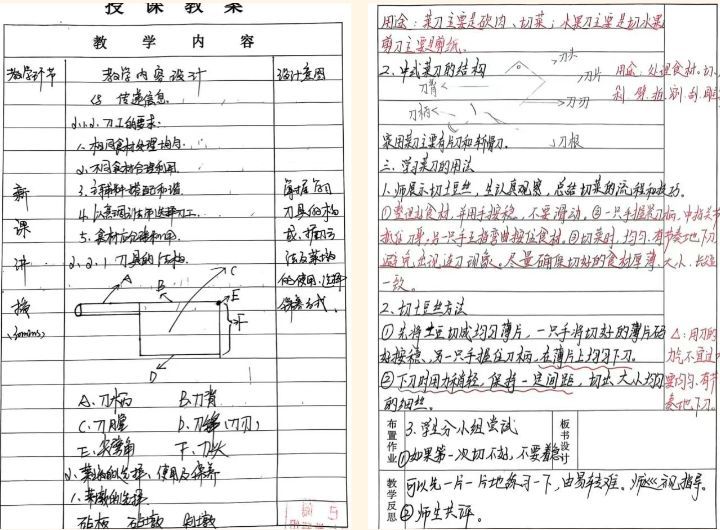 授课教案
教学内容
教学环节 教学内容设计 设计意图
传递信息
2.1.2.刀工的要求:
1.相同食材处理均匀.
2.不同食材合理利用.
3.主辅料搭配和谐.
5.食材应合理利用.
2.2.1 刀具的结构
新课讲授
(30mins)
根据
刀具的构
A
B
C
E
F
D
A.刀柄 B.刀背
C.刀膛 D.刀锋(刀刃)
E.尖弯角 F.刀头
2.菜板的选择、使用及保养
1.菜板的选择
用途:菜刀主要是砍肉、切菜;水果刀主要是切水果
剪刀主要是剪纸。
2.中式菜刀的结构
刀头
刀片
刀背
刀刃
刀柄
刀根
用途:处理食材.切.
剁.劈.拍.剐.刮.雕
家用菜刀主要有片刀和斩骨刀。
三.学习菜刀的用法
1.师展示切土豆丝,生认真观察,总结切菜的流程和技巧。
①整理好食材,并用手按稳,不要滑动,②一只手握菜刀柄,中指关节
抵住刀身,另一只手指弯曲按住食材。③切菜时,均匀.有节奏地下刀
避免出现连刀现象。尽量确保切好的食材厚薄、大小、长短
一致。
2.切土豆丝方法
①先将土豆切成均匀薄片,一只手将切好的薄片码
好按稳,另一只手握住刀柄,在薄片上均匀下刀。
②下刀时用力稍轻,保持一定间距,切出大小均匀
的细丝。
△:用刀的
力气不宜过
要均匀.有节
奏地下刀.
布置作业
3.学生分小组尝试
板书设计
①如果第一次切不好,不要着急
教学反思
可以先一片一片地练习一下,由易转难。师巡视,指导。
②师生共评。